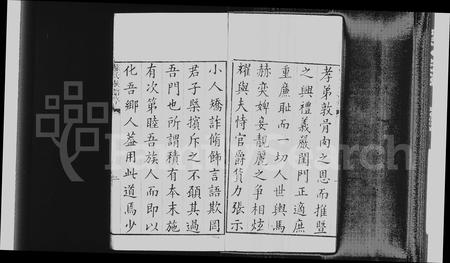 孝弟敦骨肉之恩而推暨
之興禮義嚴閨門正適庶
重廉耻而一切人世輿馬
赫奕婢妾靚麗之爭相炫
耀與夫恃官爵貨力張示
小人矯詐脩飾言語欺罔
君子槩擯斥之不願其過
吾門也所謂積有本末施
有次第睦吾族人而即以
化吾鄉人葢用此道焉少